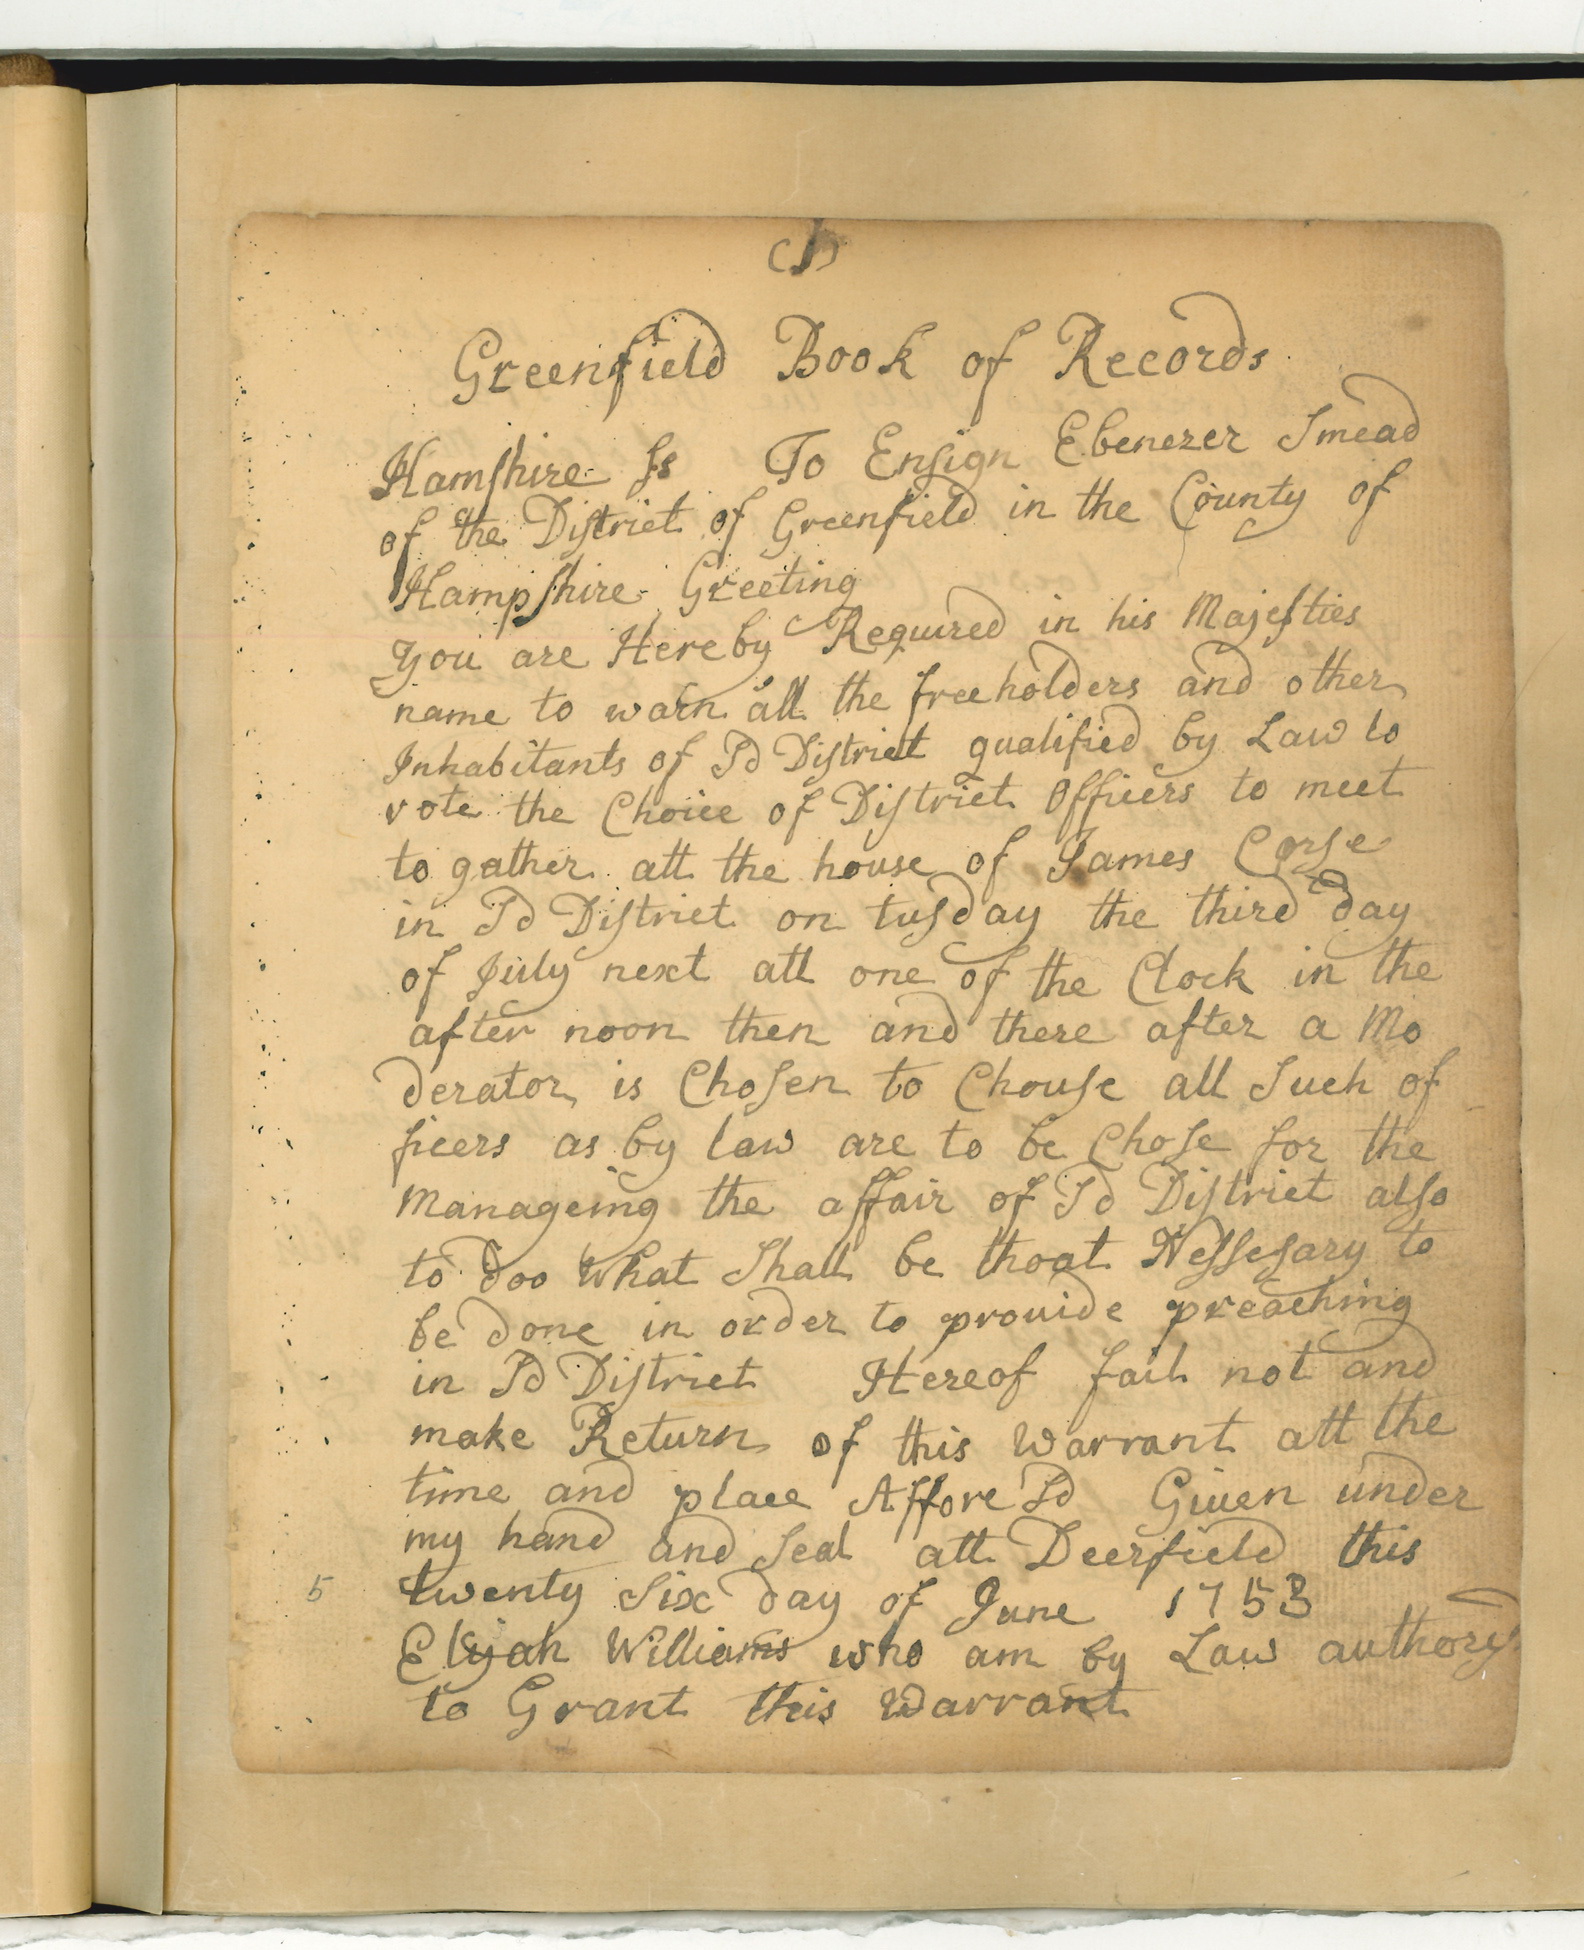 (1)
Greenfield Book of Records
Hamshire Ss To Ensign Ebenezer Smead
of the District of Greenfield in the County of
Hampshire Greeting
You are Hereby Required in his Majesties
name to warn all the freeholders and other
Inhabitants of Sd District qualified by Law to
vote the Choice of District Officers to meet
to gather att the house of James Corse
in Sd District on tusday the third day
of July next att one of the Clock in the
after noon then and there after a Mo
derator is Chosen to Chouse all Such of
ficers as by law are to be Chose for the
Manageing the affair of Sd District also
to doo what Shall be thoat Nessesary to
be done in order to provide preaching
in Sd District Hereof fail not and
make Return of this Warrant att the
time and place Affore Sd Given under
my hand and Seal att Deerfield this
5 twenty Six day of June 1753
Elijah Williams who am by Law
to Grant this Warrant